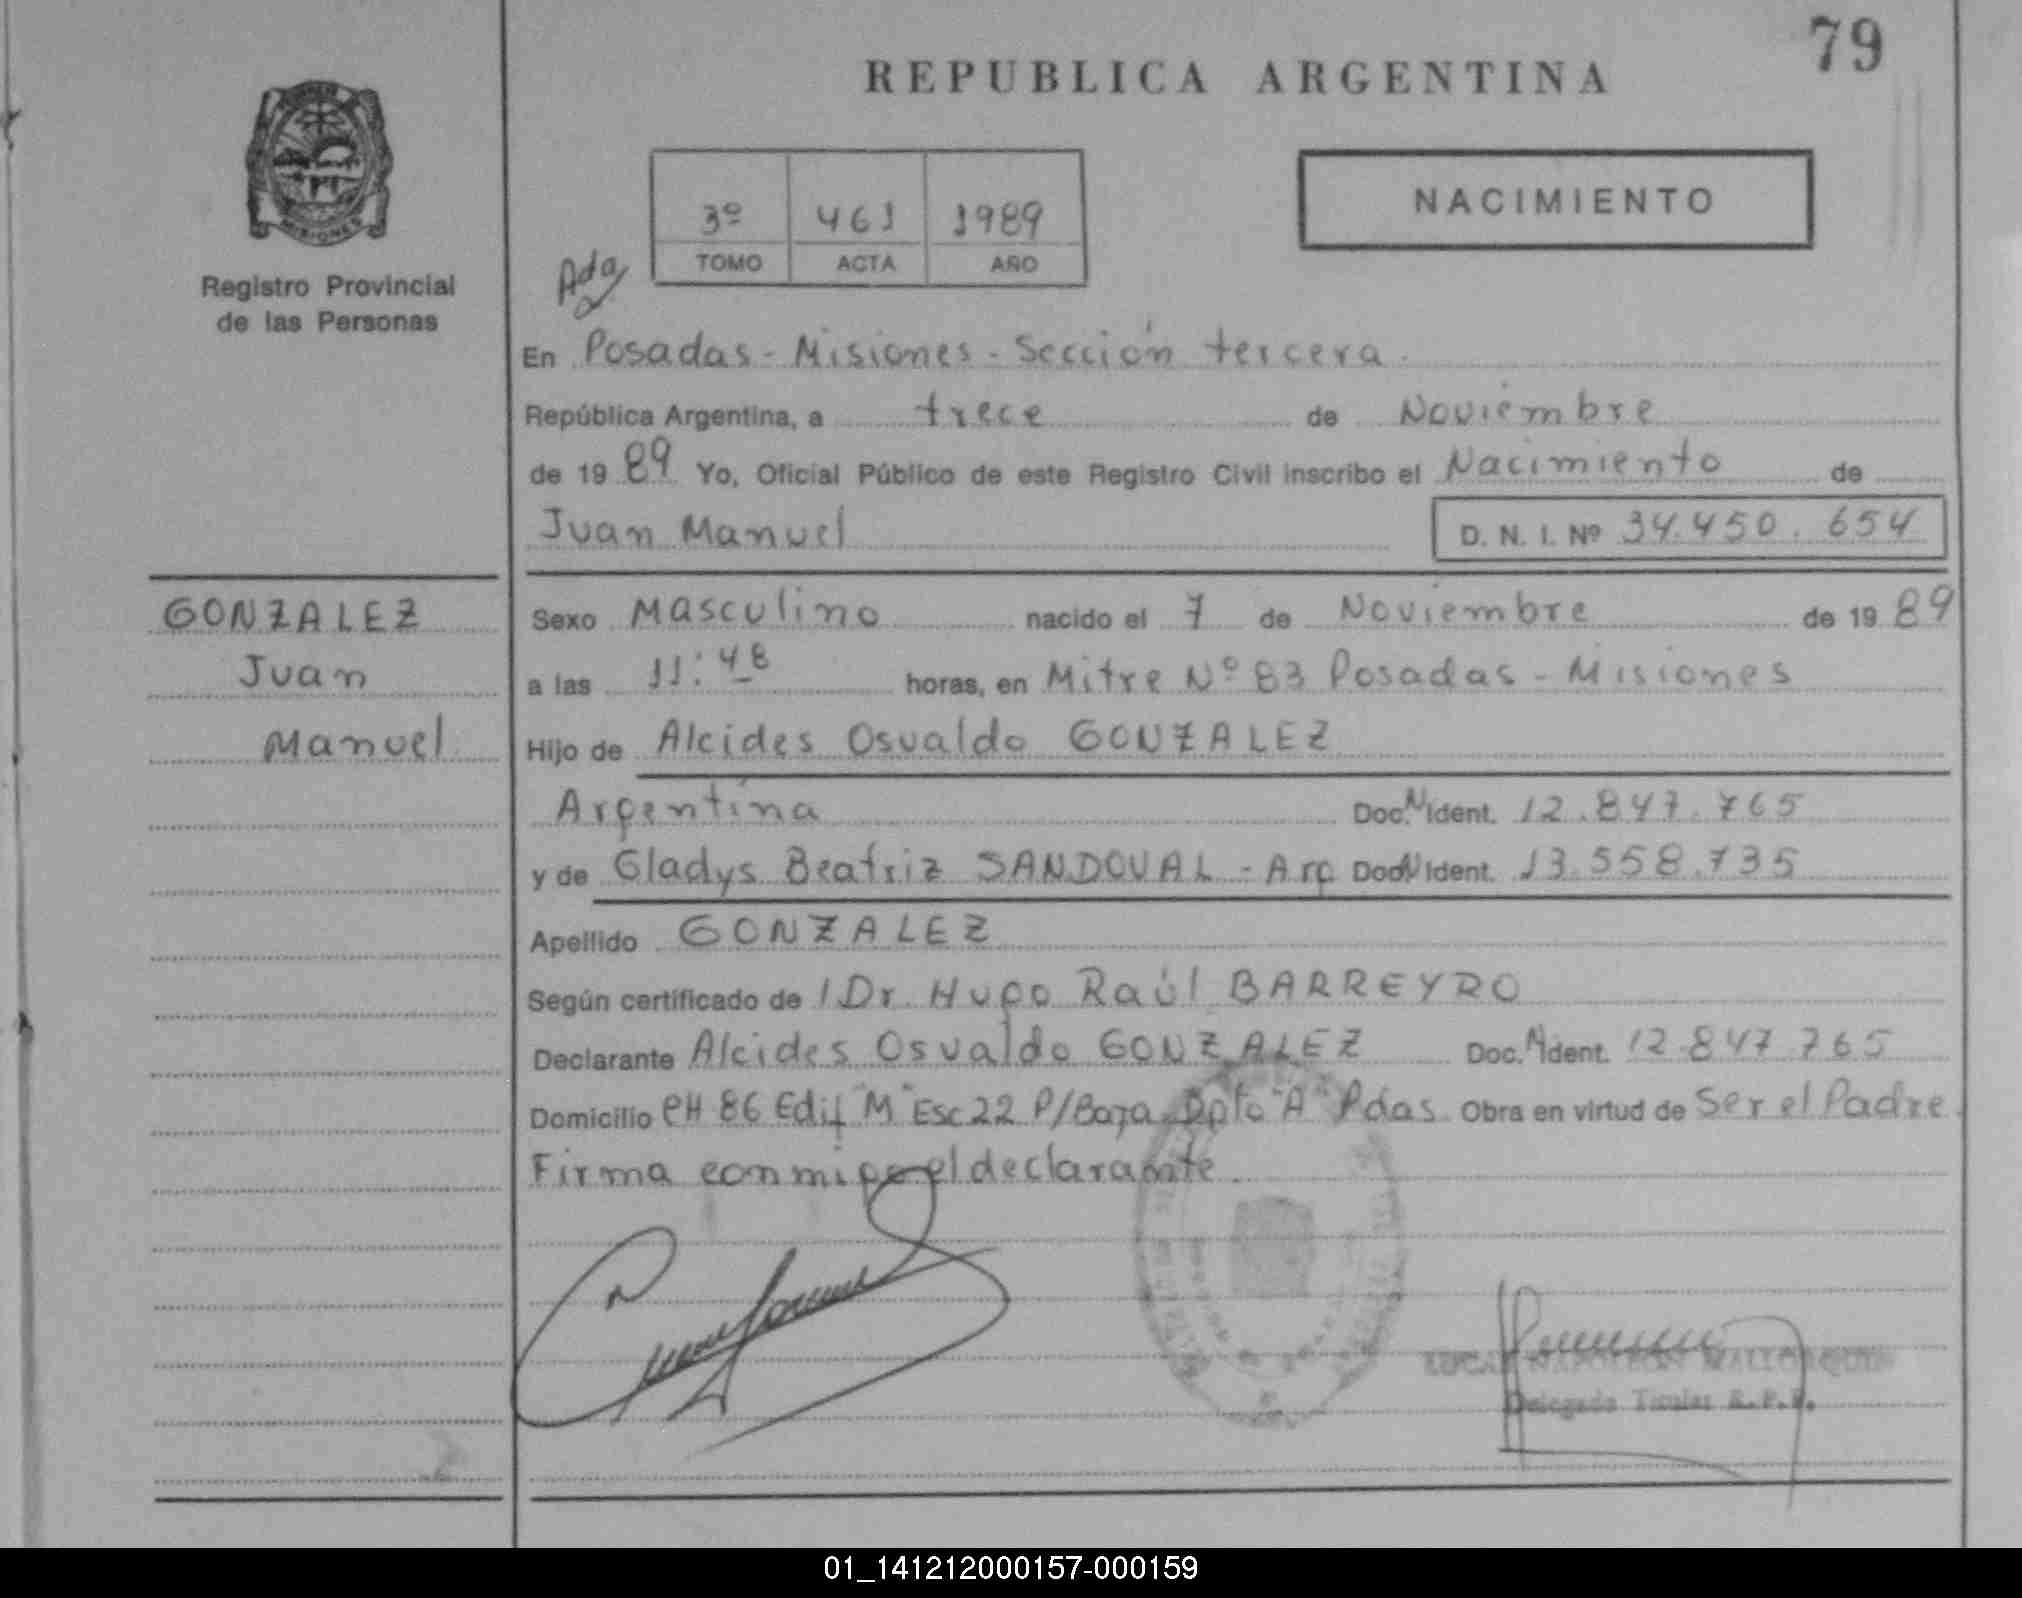 79
REPUBLICA ARGENTINA
MISIONES
Registro Provincial
de las Personas
NACIMIENTO
3º 461 1989
TOMO ACTA AÑO
Ada
En Posadas - Misiones - Sección tercera.
República Argentina, a trece de Noviembre
de 1989 Yo, Oficial Público de este Registro Civil inscribo el Nacimiento de
Juan Manuel D. N. I. Nº 34.450.654
GONZALEZ
Juan
Manuel
Sexo Masculino nacido el 7 de Noviembre de 1989
a las 11:48 horas, en Mitre Nº 83 Posadas - Misiones
Hijo de Alcides Osvaldo GONZALEZ
Argentina Doc. N Ident. 12.847.765
y de Gladys Beatriz SANDOVAL - Arg Doc. N Ident. 13.558.735
Apellido GONZALEZ
Según certificado de l Dr. Hugo Raúl BARREYRO
Declarante Alcides Osvaldo GONZALEZ Doc. N Ident. 12.847.765
Domicilio CH 86 Edif "M" Esc 22 P/Baja Dpto "A" Pdas. Obra en virtud de Ser el Padre.
Firma conmigo el declarante.
LUCAS NAPOLEON MALLORQUIN
Delegado Titular R.P.P.
01_141212000157-000159